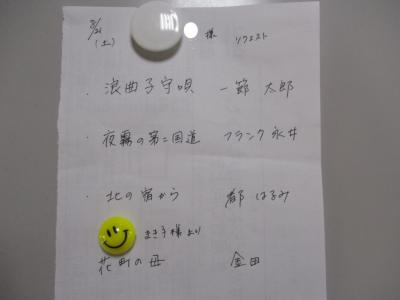 3/21
(土) 様 リクエスト
・浪曲子守唄 一節 太郎
・夜霧の第二国道 フランク永井
・北の宿から 都 はるみ
まき子様より
花町の母 金田